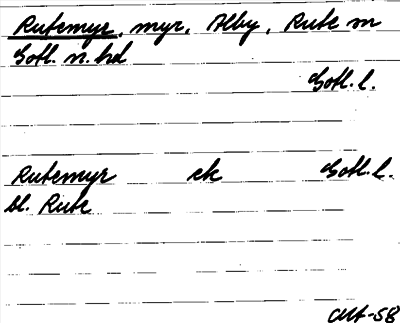 Rutemyr, myr, Alby, Rute sn
Gotl. n. hd
Gotl. l.
Rutemyr ek Gotl. l.
bl. Rute